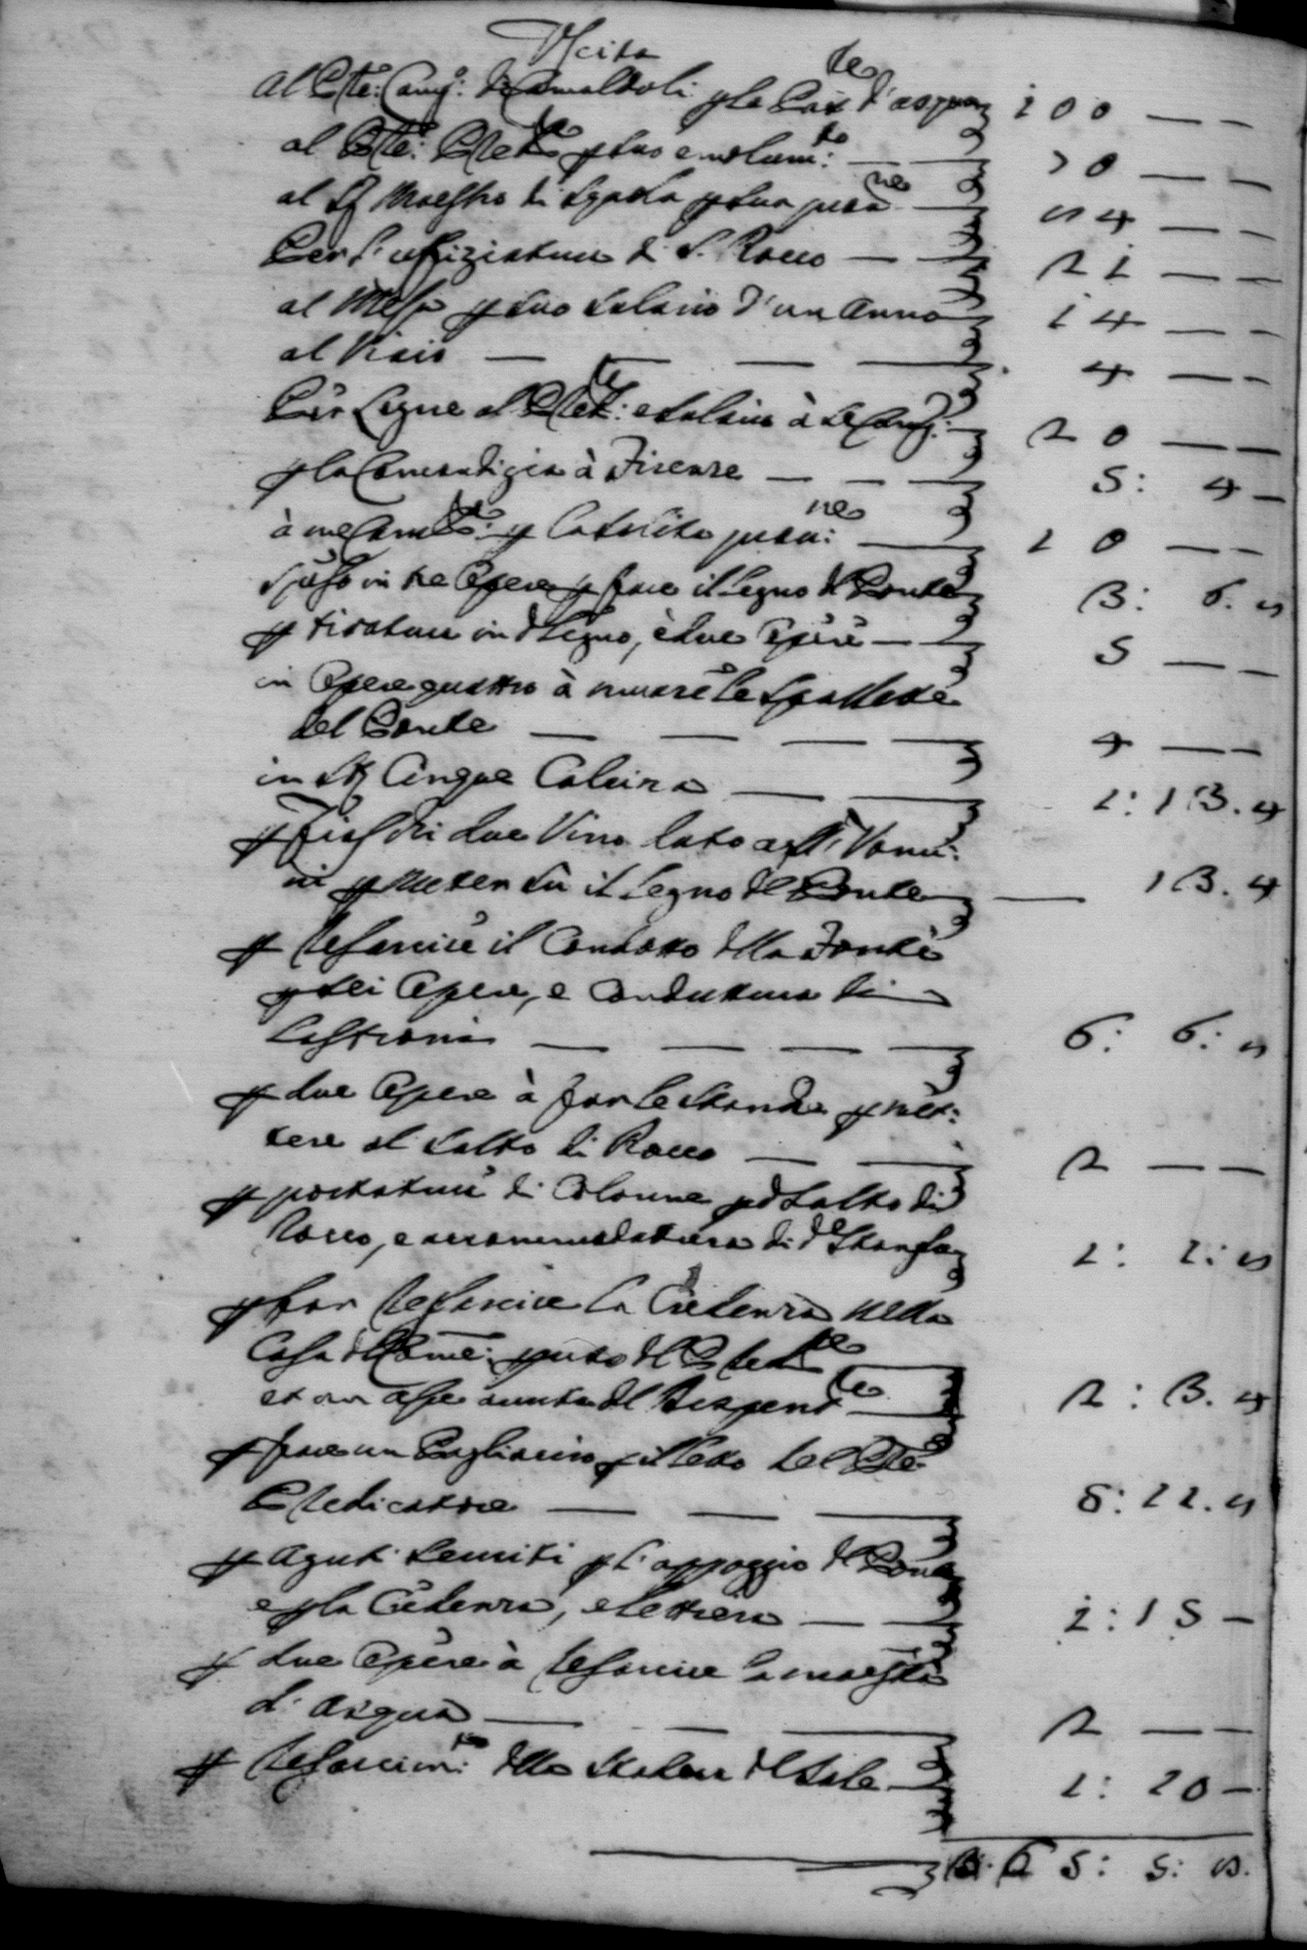 Uscita
al Pre: Camo: di Camaldoli p la Prãte d'acqua 100 — —
al Pre: Predte p suo emolumto: — 70 — —
al Sr Maestro di Scuola p sua provne — 84 — —
Per l'uffiziatura di S. Rocco — — 21 — —
al Messo p suo salario d'un Anno 14 — —
al Vicario — — — — 4 — —
Per Legne al Predte: e salario à 20 — —
p la à Firenze — — — 5: 4 —
à me Cam: p la solita provne: — 10 — —
Speso in tre Opere p fare il Legno del Ponte 3: 6. 8
p tiratura in do Legno, e due Opere — — 5 — —
in Opere quattro à murare le Spallette
del Ponte — — — — 4 — —
in Calcina — — 1: 13. 4
p fiaschi due Vino dato agli Vomi:
ni p metter sù il Legno del Ponte — 13. 4
p resarcire il Condotto della Fonte
p sei Opere, e Conduttura di
Lastroni — — — — 6: 6: 8
p due Opere à far le Stanghe p met:
tere al Salto di Rocco — — 2 — —
p portatura di Colonne p do Salto di
Rocco, e accommodatura di de Stanghe 1: 1: 8
p far resarcire la Credenza nella
Casa del Come: p uso del Predre
et un asse 2: 3. 4
p fare un Pagliaricio p il letto del Pre
Predicatore — — — 8: 11. 8
p Aguti serviti p l'appoggio del Ponte
e p la Credenza, e lettiera — — 1: 15 —
p due Opere à resarcire la
d'acqua — — — 2 — —
p resarcimto: della del Sale — 1: 10 —
— — 5: 5: 8.